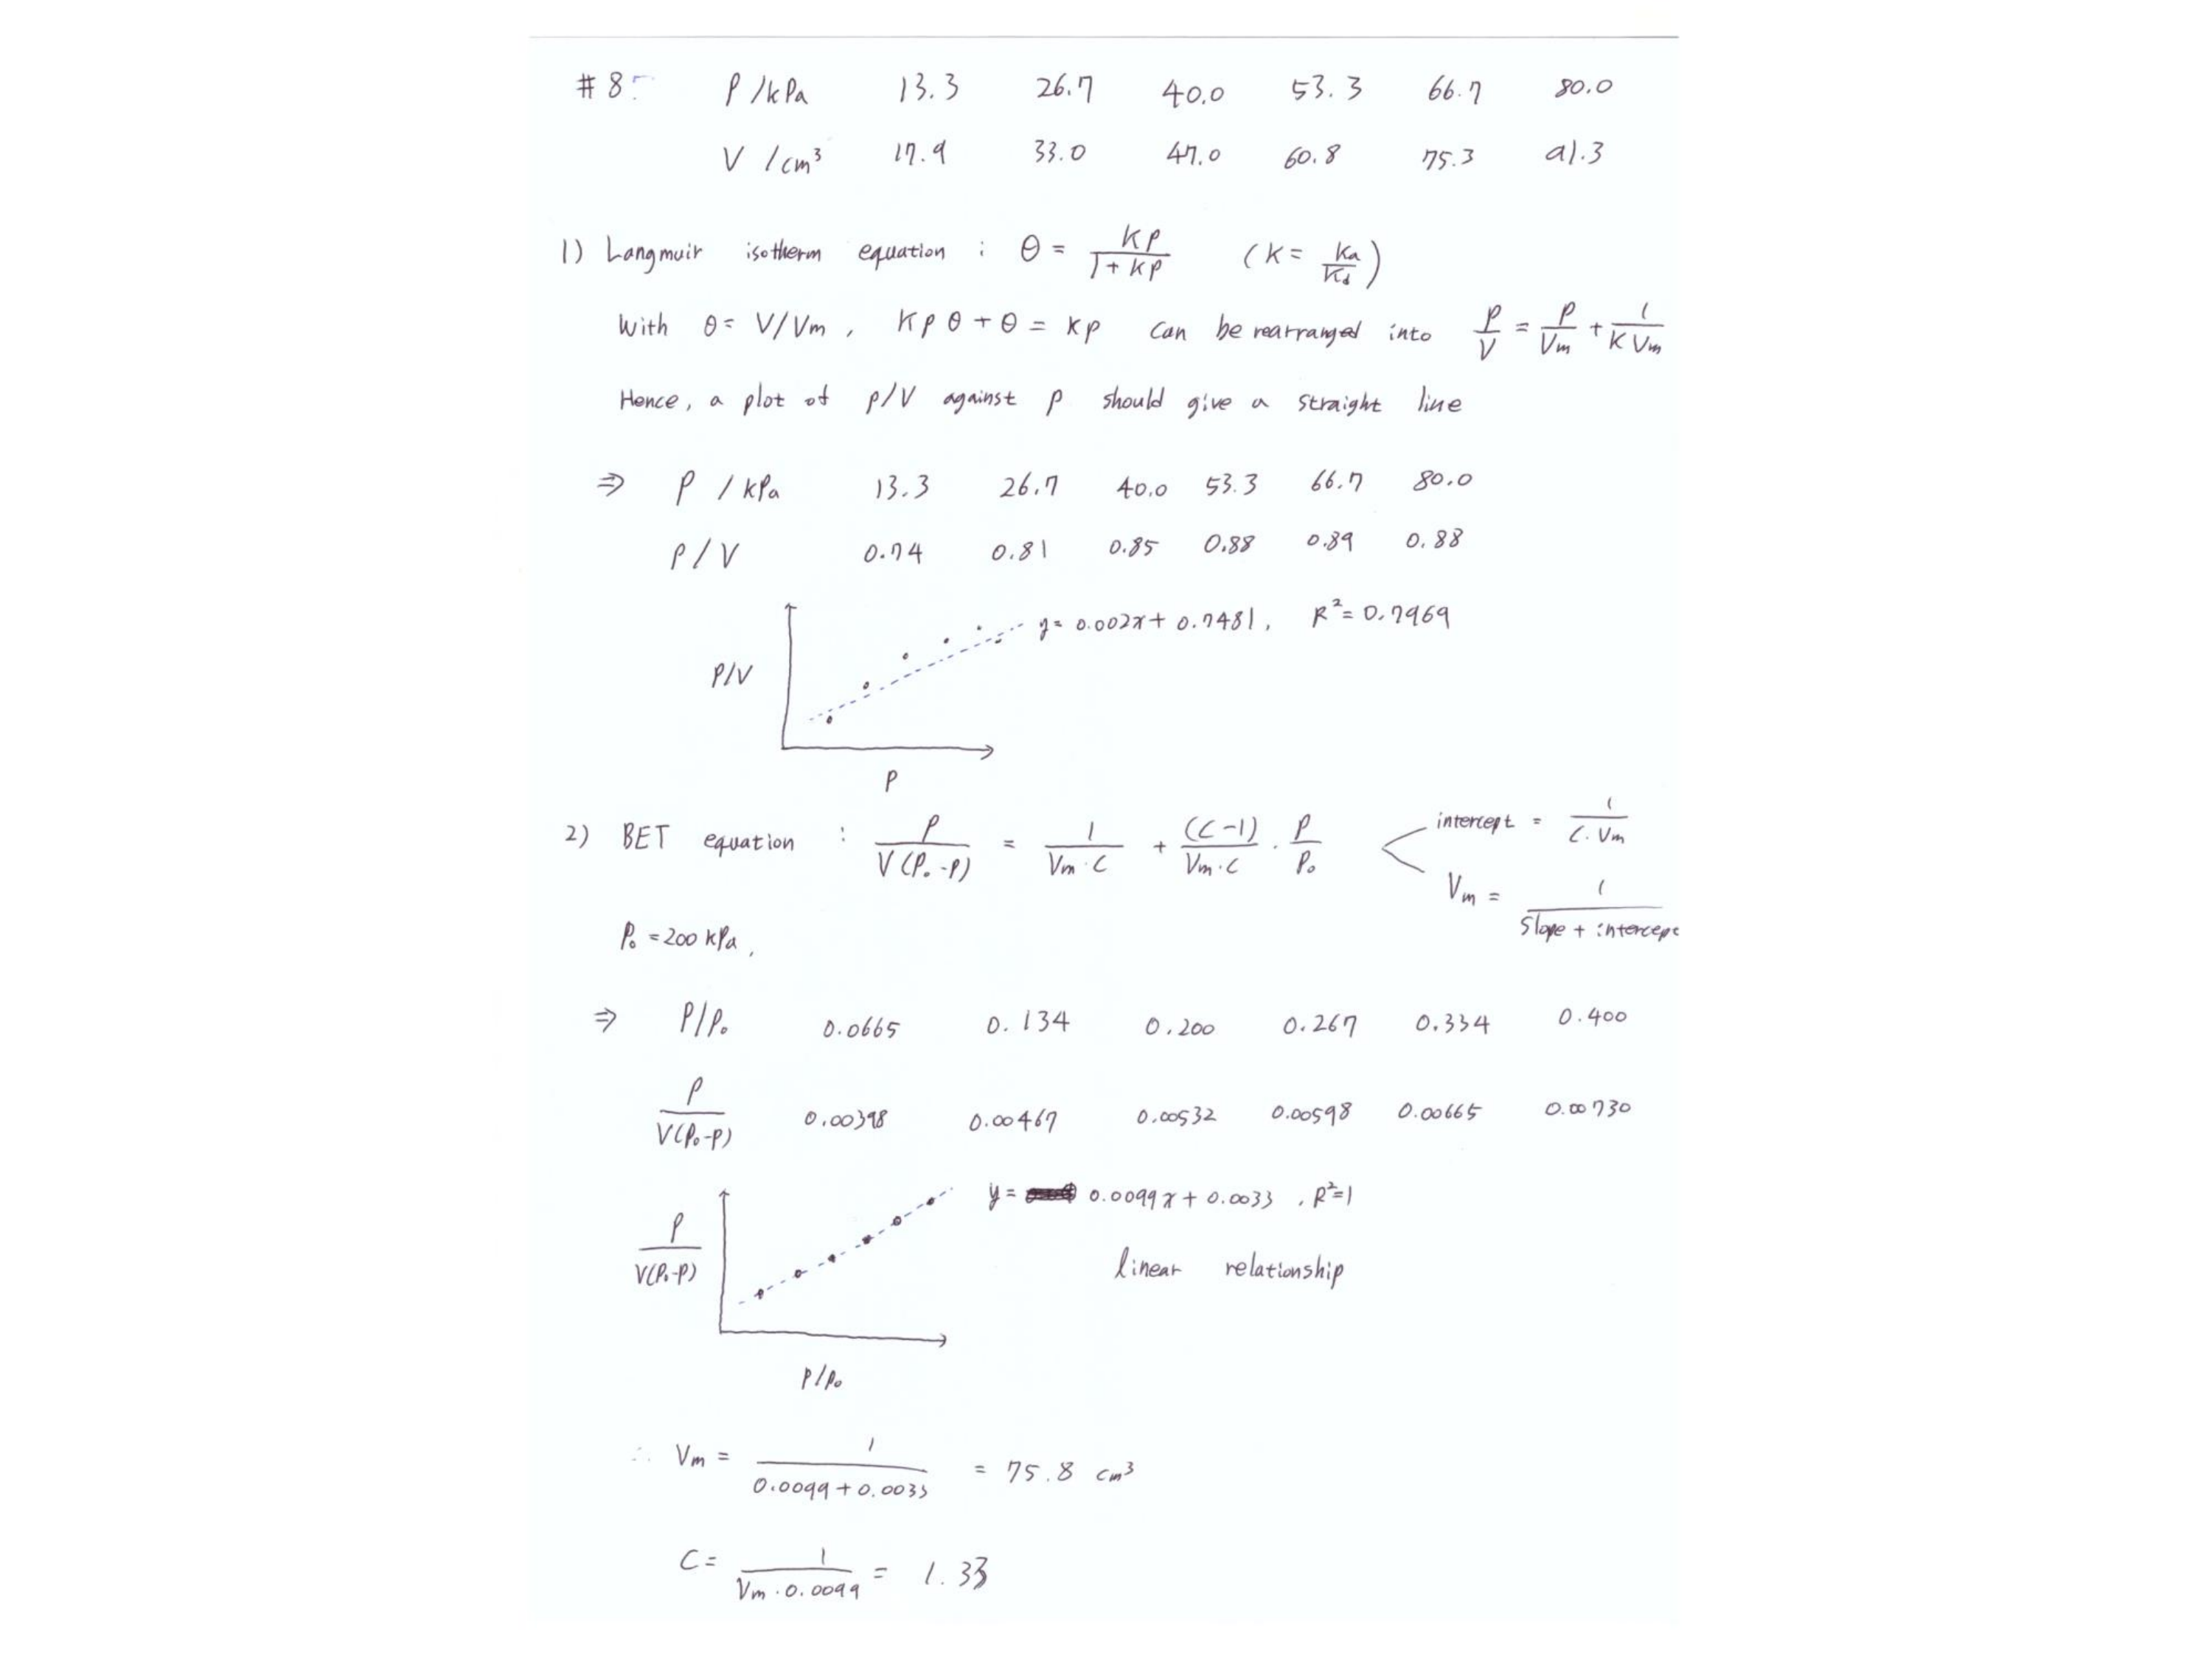 #8. P /kPa 13.3 26.7 40.0 53.3 66.7 80.0
V /cm³ 17.9 33.0 47.0 60.8 75.3 91.3
1) Langmuir isotherm equation : θ = Kp / (1 + Kp) (K = Ka/Kd)
With θ = V/Vm , Kpθ + θ = Kp can be rearranged into p/V = p/Vm + 1/(K Vm)
Hence, a plot of p/V against p should give a straight line
⇒ P / kPa 13.3 26.7 40.0 53.3 66.7 80.0
P / V 0.74 0.81 0.85 0.88 0.89 0.88
y = 0.002x + 0.7481, R² = 0.7969
P/V
P
2) BET equation : P / V(P₀-P) = 1 / (Vm·C) + (C-1) / (Vm·C) · P/P₀
intercept = 1 / (C·Vm)
Vm = 1 / (Slope + intercept)
P₀ = 200 kPa,
⇒ P/P₀ 0.0665 0.134 0.200 0.267 0.334 0.400
P / V(P₀-P) 0.00398 0.00467 0.00532 0.00598 0.00665 0.00730
y = 0.0099x + 0.0033 , R²=1
P / V(P₀-P)
linear relationship
P/P₀
∴ Vm = 1 / (0.0099 + 0.0033) = 75.8 cm³
C = 1 / (Vm · 0.0099) = 1.33